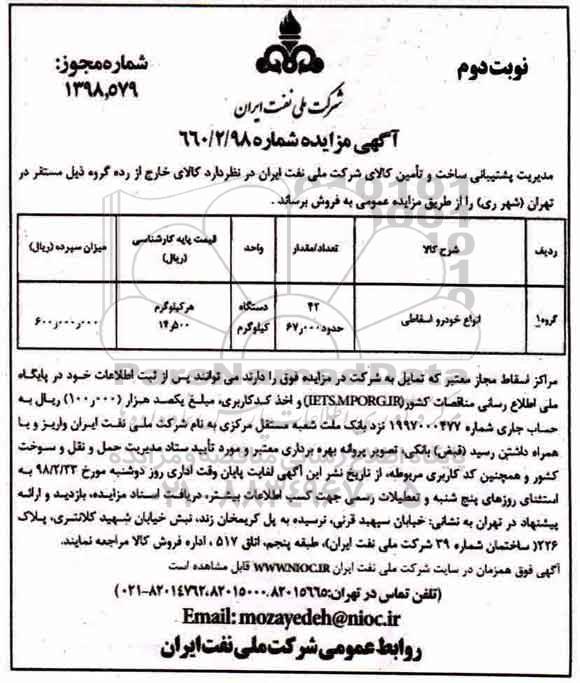 نوبت دوم
شماره مجوز:
۱۳۹۸٫۵۷۹
شرکت ملی نفت ایران
آگهی مزایده شماره ۶۶۰/۲/۹۸
مدیریت پشتیبانی ساخت و تأمین کالای شرکت ملی نفت ایران در نظردارد کالای خارج از رده گروه ذیل مستقر در
تهران (شهر ری) را از طریق مزایده عمومی به فروش برساند.
ردیف شرح کالا تعداد/مقدار واحد قیمت پایه کارشناسی (ریال) میزان سپرده (ریال)
گروه۱ انواع خودرو اسقاطی ۴۲ دستگاه هرکیلوگرم ۶۰۰٫۰۰۰٫۰۰۰
حدود۶۷٫۰۰۰ کیلوگرم ۱۴٫۵۰۰
مراکز اسقاط مجاز معتبر که تمایل به شرکت در مزایده فوق را دارند می توانند پس از ثبت اطلاعات خود در پایگاه
ملی اطلاع رسانی مناقصات کشور(IETS.MPORG.IR) و اخذ کدکاربری، مبلغ یکصد هزار (۱۰۰٫۰۰۰) ریال به
حساب جاری شماره ۱۹۹۷۰۰۰۴۷۷ نزد بانک ملت شعبه مستقل مرکزی به نام شرکت ملی نفت ایران واریز و با
همراه داشتن رسید (فیش) بانکی، تصویر پروانه بهره برداری معتبر و مورد تأیید ستاد مدیریت حمل و نقل و سوخت
کشور و همچنین کد کاربری مربوطه، از تاریخ نشر این آگهی لغایت پایان وقت اداری روز دوشنبه مورخ ۹۸/۲/۲۳ به
استثنای روزهای پنج شنبه و تعطیلات رسمی جهت کسب اطلاعات بیشتر، دریافت اسناد مزایده، بازدید و ارائه
پیشنهاد در تهران به نشانی: خیابان سپهبد قرنی، نرسیده به پل کریمخان زند، نبش خیابان شهید کلانتری، پلاک
۲۲۶( ساختمان شماره ۳۹ شرکت ملی نفت ایران)، طبقه پنجم، اتاق ۵۱۷ ، اداره فروش کالا مراجعه نمایند.
آگهی فوق همزمان در سایت شرکت ملی نفت ایران WWW.NIOC.IR قابل مشاهده است
(تلفن تماس در تهران:۸۲۰۱۵۶۶۵،۸۲۰۱۵۰۰۰،۸۲۰۱۴۷۶۲-۰۲۱)
Email: mozayedeh@nioc.ir
روابط عمومی شرکت ملی نفت ایران